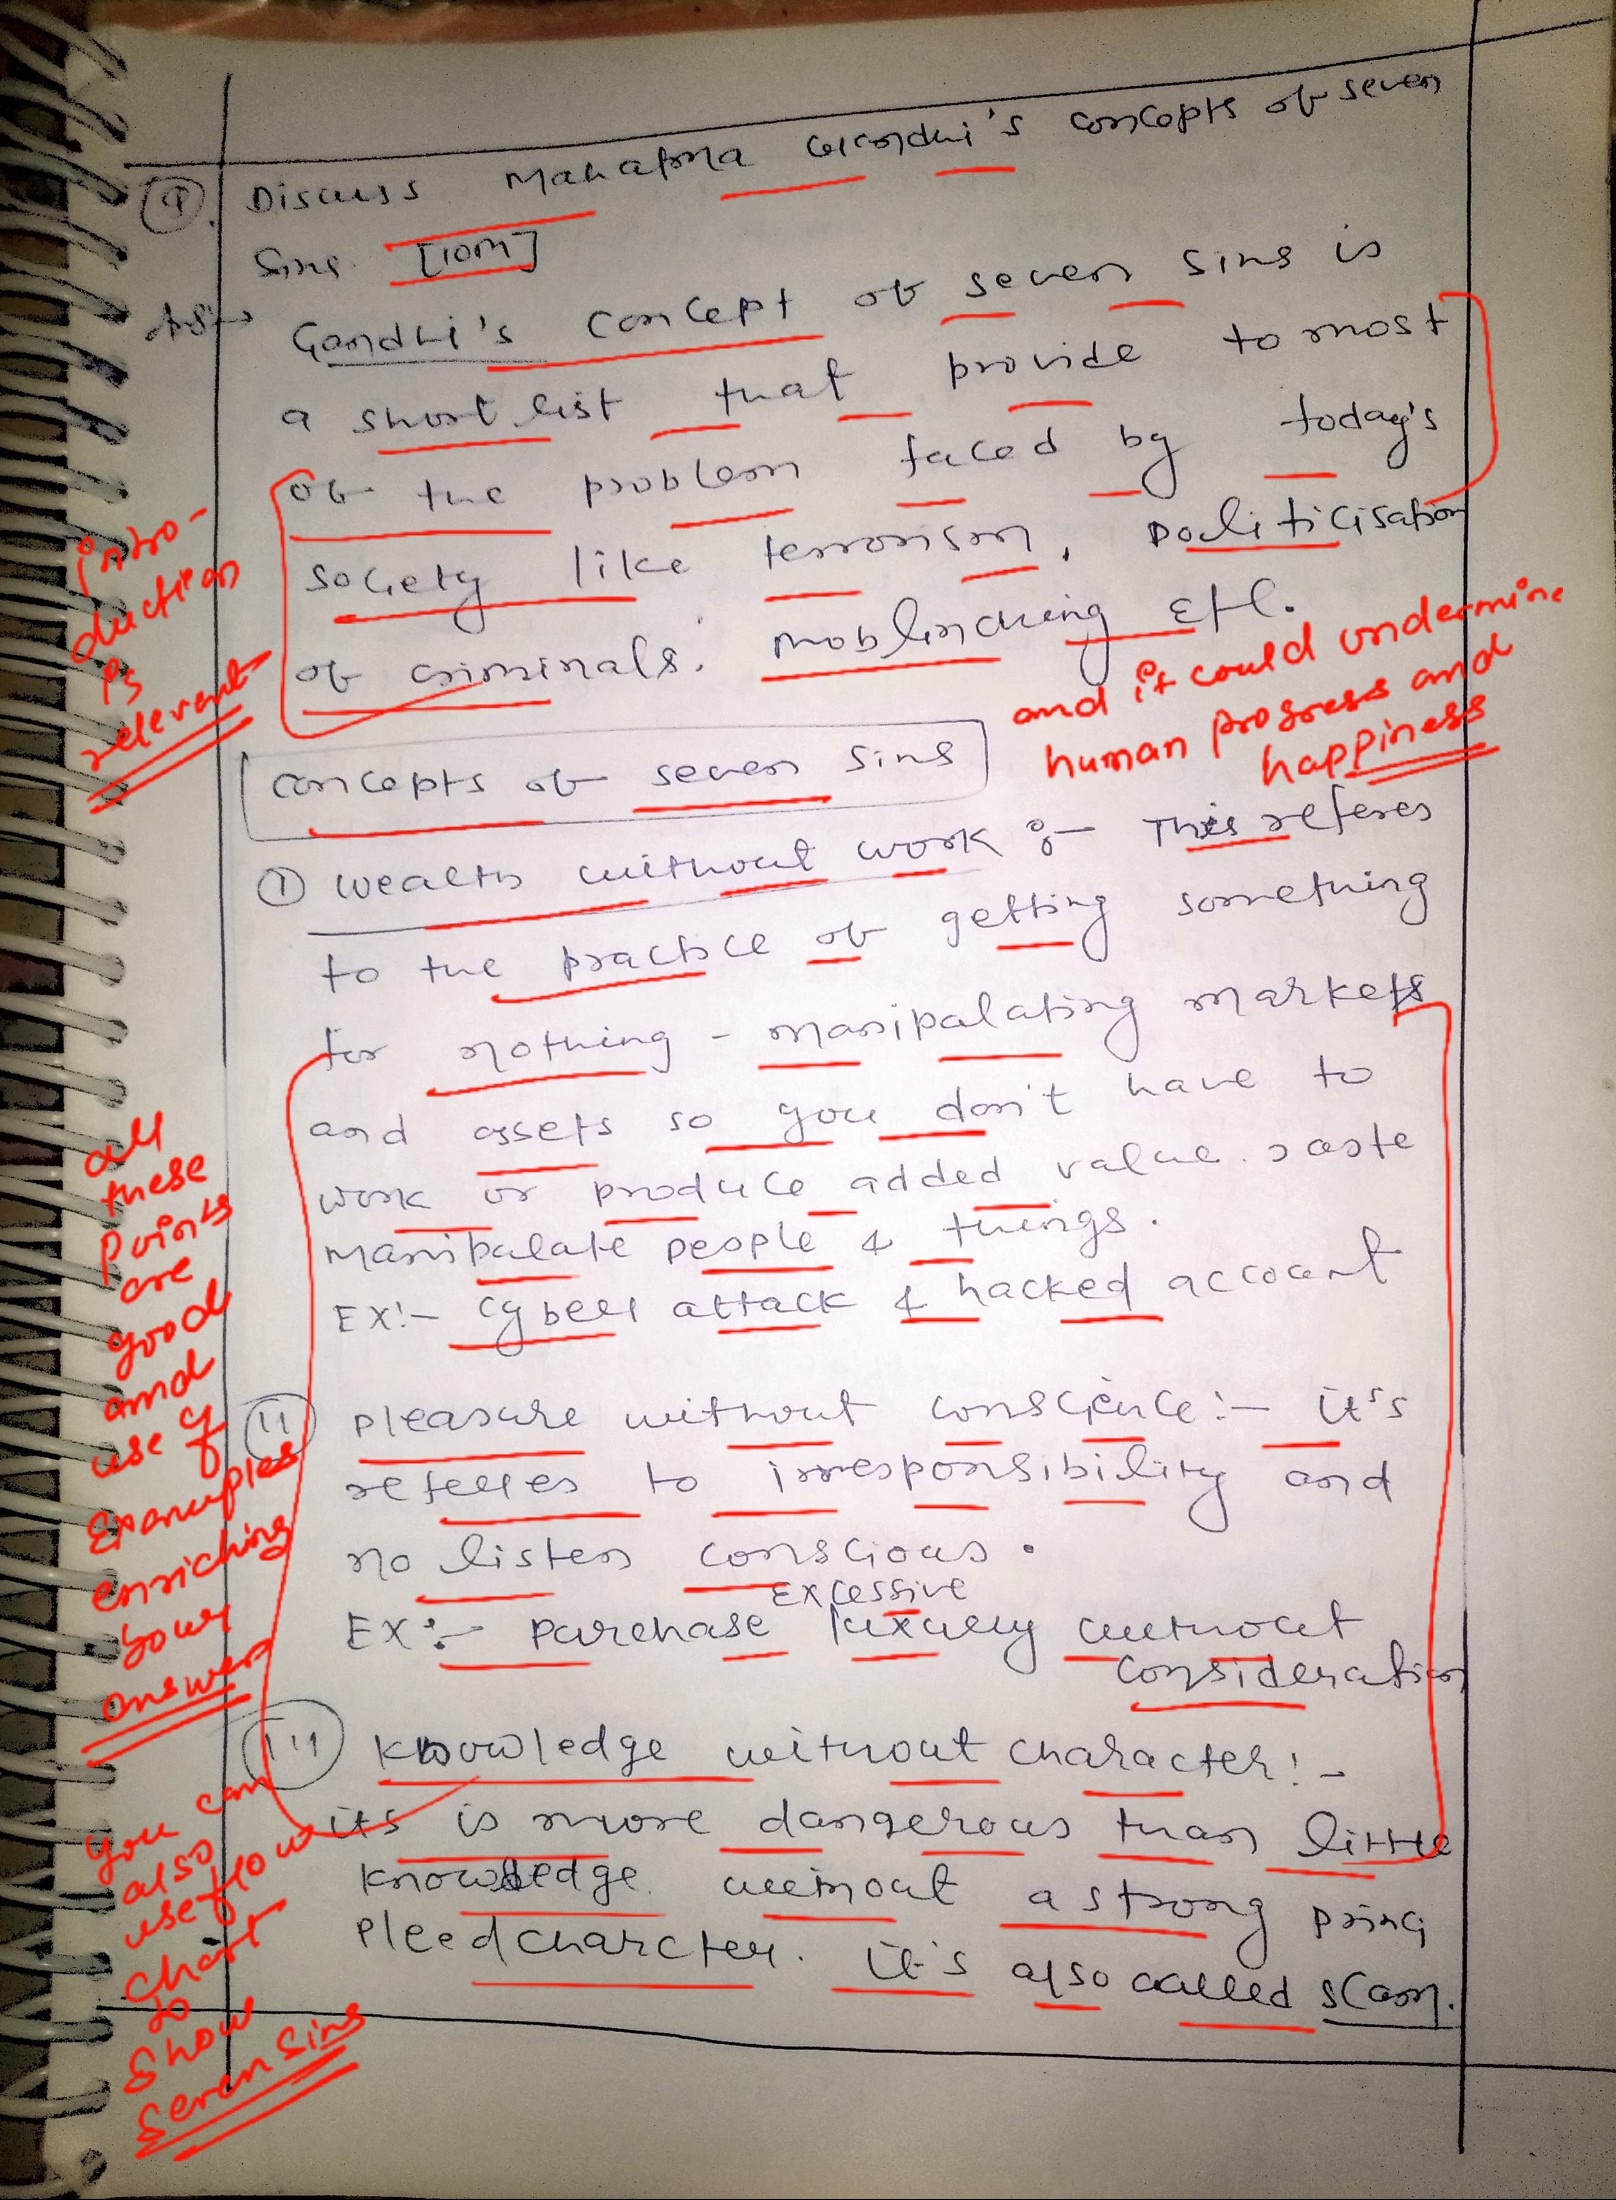 Q. Discuss Mahatma Gandhi's concepts of seven
Sins. [10M]
Ans→ Gandhi's concept of seven sins is
a short list that provide to most
of the problem faced by today's
society like terrorism, Politicisation
of criminals, moblinching Etc.
and it could undermine
human progress and
happiness
intro-
duction
is
relevant
concepts of seven sins
① wealth without work :- This referes
to the practice of getting something
for nothing - manipalating markets
and assets so you don't have to
work or produce added value. Jaste
Manipalate people & things.
EX:- cyber attack & hacked account
all
these
points
are
good
and
use of
Examples
enriching
your
answer
(ii) pleasure without conscience:- it's
referes to irresponsibility and
no listen conscious.
Excessive
EX:- purchase luxuery without
consideration
(iii) knowledge without character:-
its is more dangerous than little
knowledge without a strong princi
pleedcharcter. it's also called scam.
you can
also
use flow
chart
to
show
seven sins